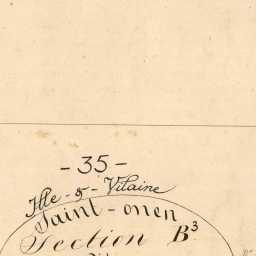 - 35 -
Ille - & - Vilaine
Saint - onen
Section B³